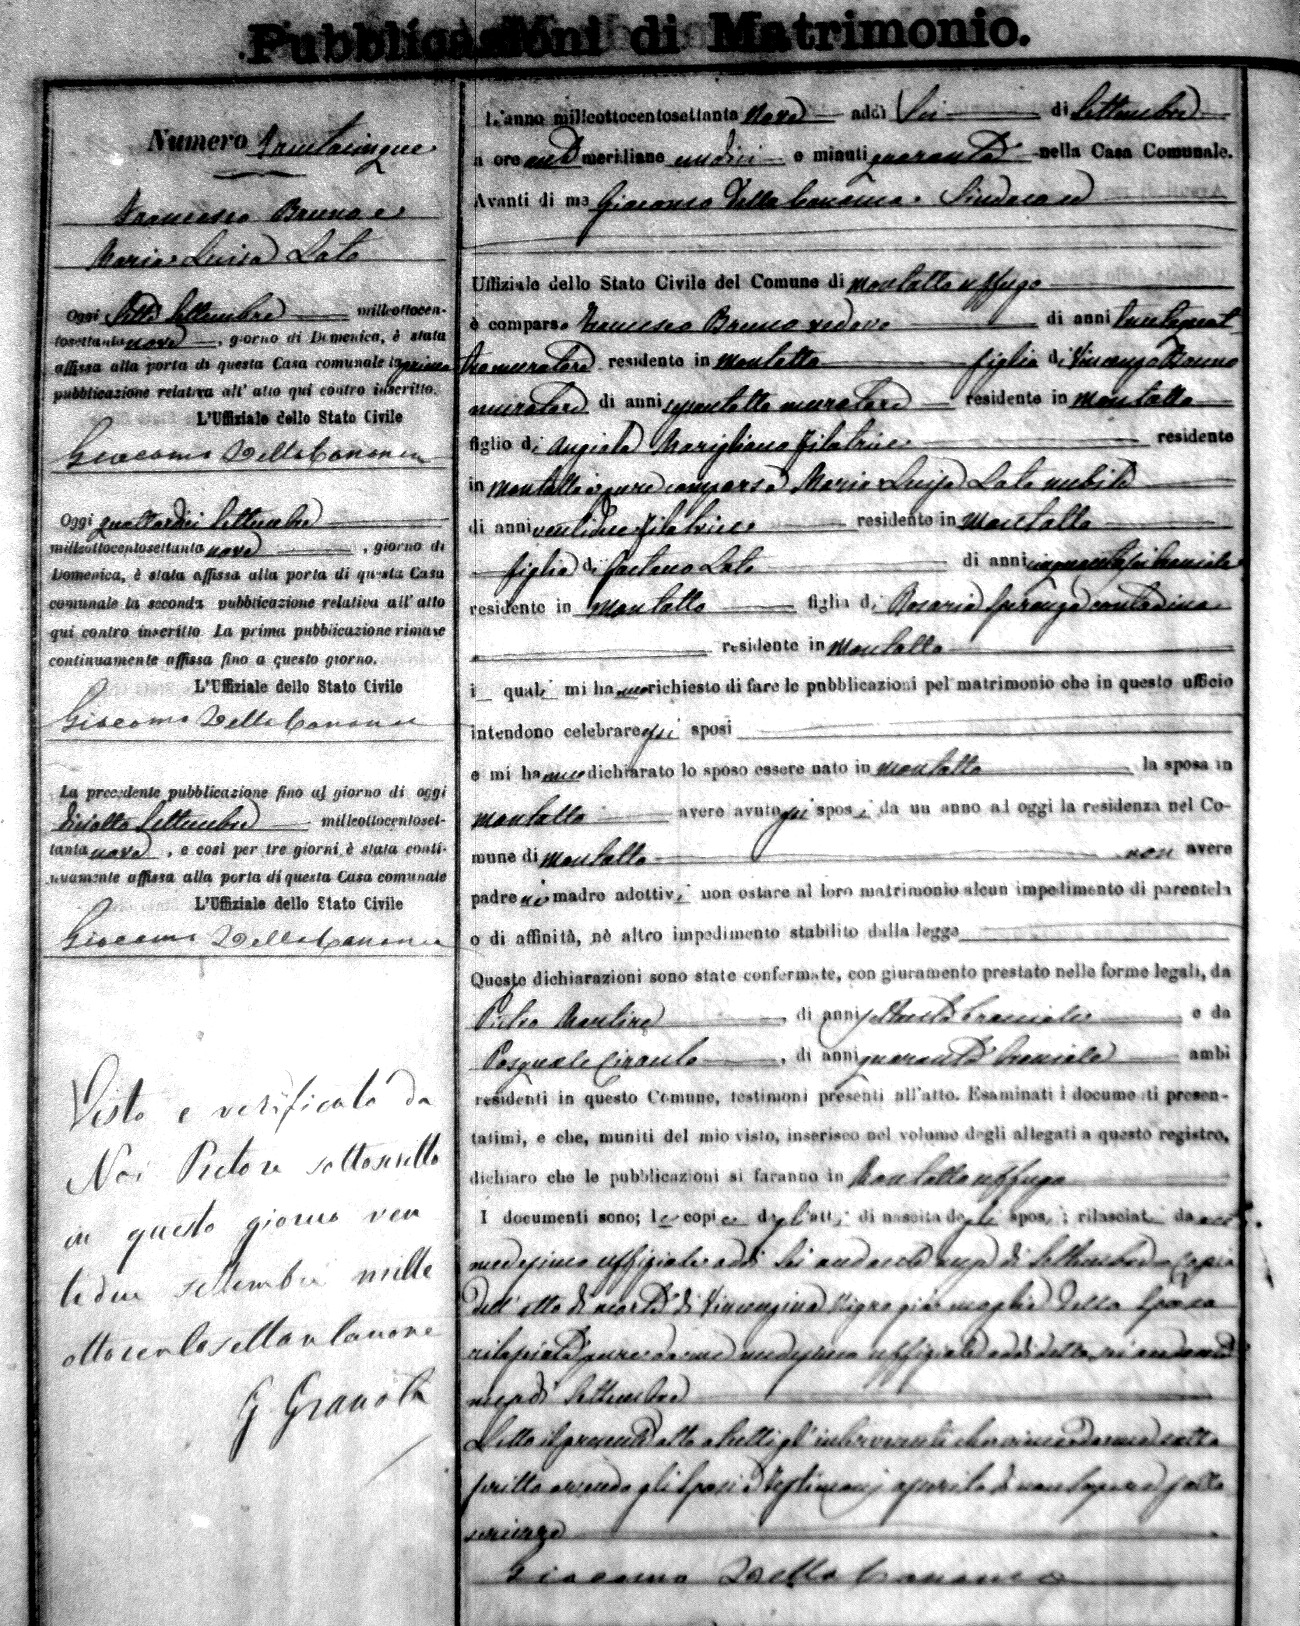 Pubblicazioni di Matrimonio.
Numero trentacinque
Francesco Bruno e
Maria Luisa Lato
Oggi sette Settembre millottocen-
tosettanta nove, giorno di Domenica, è stata
affissa alla porta di questa Casa comunale la prima
pubblicazione relativa all' atto qui contro inscritto.
L'Uffiziale dello Stato Civile
Giacomo Della Cananea
Oggi quattordici Settembre
millottocentosettanta nove, giorno di
Domenica, è stata affissa alla porta di questa Casa
comunale la seconda pubblicazione relativa all' atto
qui contro inscritto. La prima pubblicazione rimase
continuamente affissa fino a questo giorno.
L'Uffiziale dello Stato Civile
Giacomo Della Cananea
La precedente pubblicazione fino al giorno di oggi
diciotto Settembre millottocentoset-
tanta nove, e così per tre giorni è stata conti-
nuamente affissa alla porta di questa Casa comunale
L'Uffiziale dello Stato Civile
Giacomo Della Cananea
Visto e verificato da
Noi Pretore sottoscritto
in questo giorno ven
tidue settembre mille
ottocentosettantanove
G Granata
L'anno millottocentosettanta nove addì Sei di Settembre
a ore anti meridiane undici e minuti quaranta nella Casa Comunale.
Avanti di me Giacomo Della Cananea Sindaco ed
Uffiziale dello Stato Civile del Comune di Montalto uffugo
è comparso Francesco Bruno vedovo di anni trentaquat
tro muratore residente in Montalto figlio di Vincenzo Bruno
muratore di anni muratore residente in Montalto
figlio di Angiola Marigliano filatrice residente
in Montalto è pure comparsa Maria Luisa Lato nubile
di anni ventidue filatrice residente in Montalto
figlia di Gaetano Lato di anni cinquantasei bracciale
residente in Montalto figlia di Rosaria Speranza contadina
residente in Montalto
i quali mi hanno richiesto di fare le pubblicazioni pel matrimonio che in questo ufficio
intendono celebrare gli sposi
e mi hanno dichiarato lo sposo essere nato in Montalto la sposa in
Montalto avere avuto gli sposi da un anno ad oggi la residenza nel Co-
mune di Montalto non avere
padre nè madre adottivi non ostare al loro matrimonio alcun impedimento di parentela
o di affinità, nè altro impedimento stabilito dalla legge
Queste dichiarazioni sono state confermate, con giuramento prestato nelle forme legali, da
Pietro di anni settanta bracciale e da
Pasquale Ciraulo, di anni quaranta bracciale ambi
residenti in questo Comune, testimoni presenti all'atto. Esaminati i documenti presen-
tatimi, e che, muniti del mio visto, inserisco nel volume degli allegati a questo registro,
dichiaro che le pubblicazioni si faranno in Montalto uffugo
I documenti sono; le copie degli atti di nascita degli sposi; rilasciate da me
medesimo uffiziale addì Sei andante mese di Settembre copia
dell' atto di morte di Vincenzina Nigro già moglie dello Sposo
rilasciata pure da me medesimo uffiziale addì detto sei andante
mese di Settembre
Letto il presente atto a tutti gl' intervenuti sotto
scritto avendo gli Sposi e Testimonj asserito di non sapere
scrivere
Giacomo Della Cananea